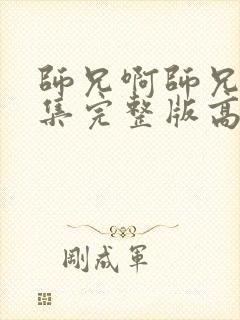 師兄啊師兄
集完整版高
剛成軍